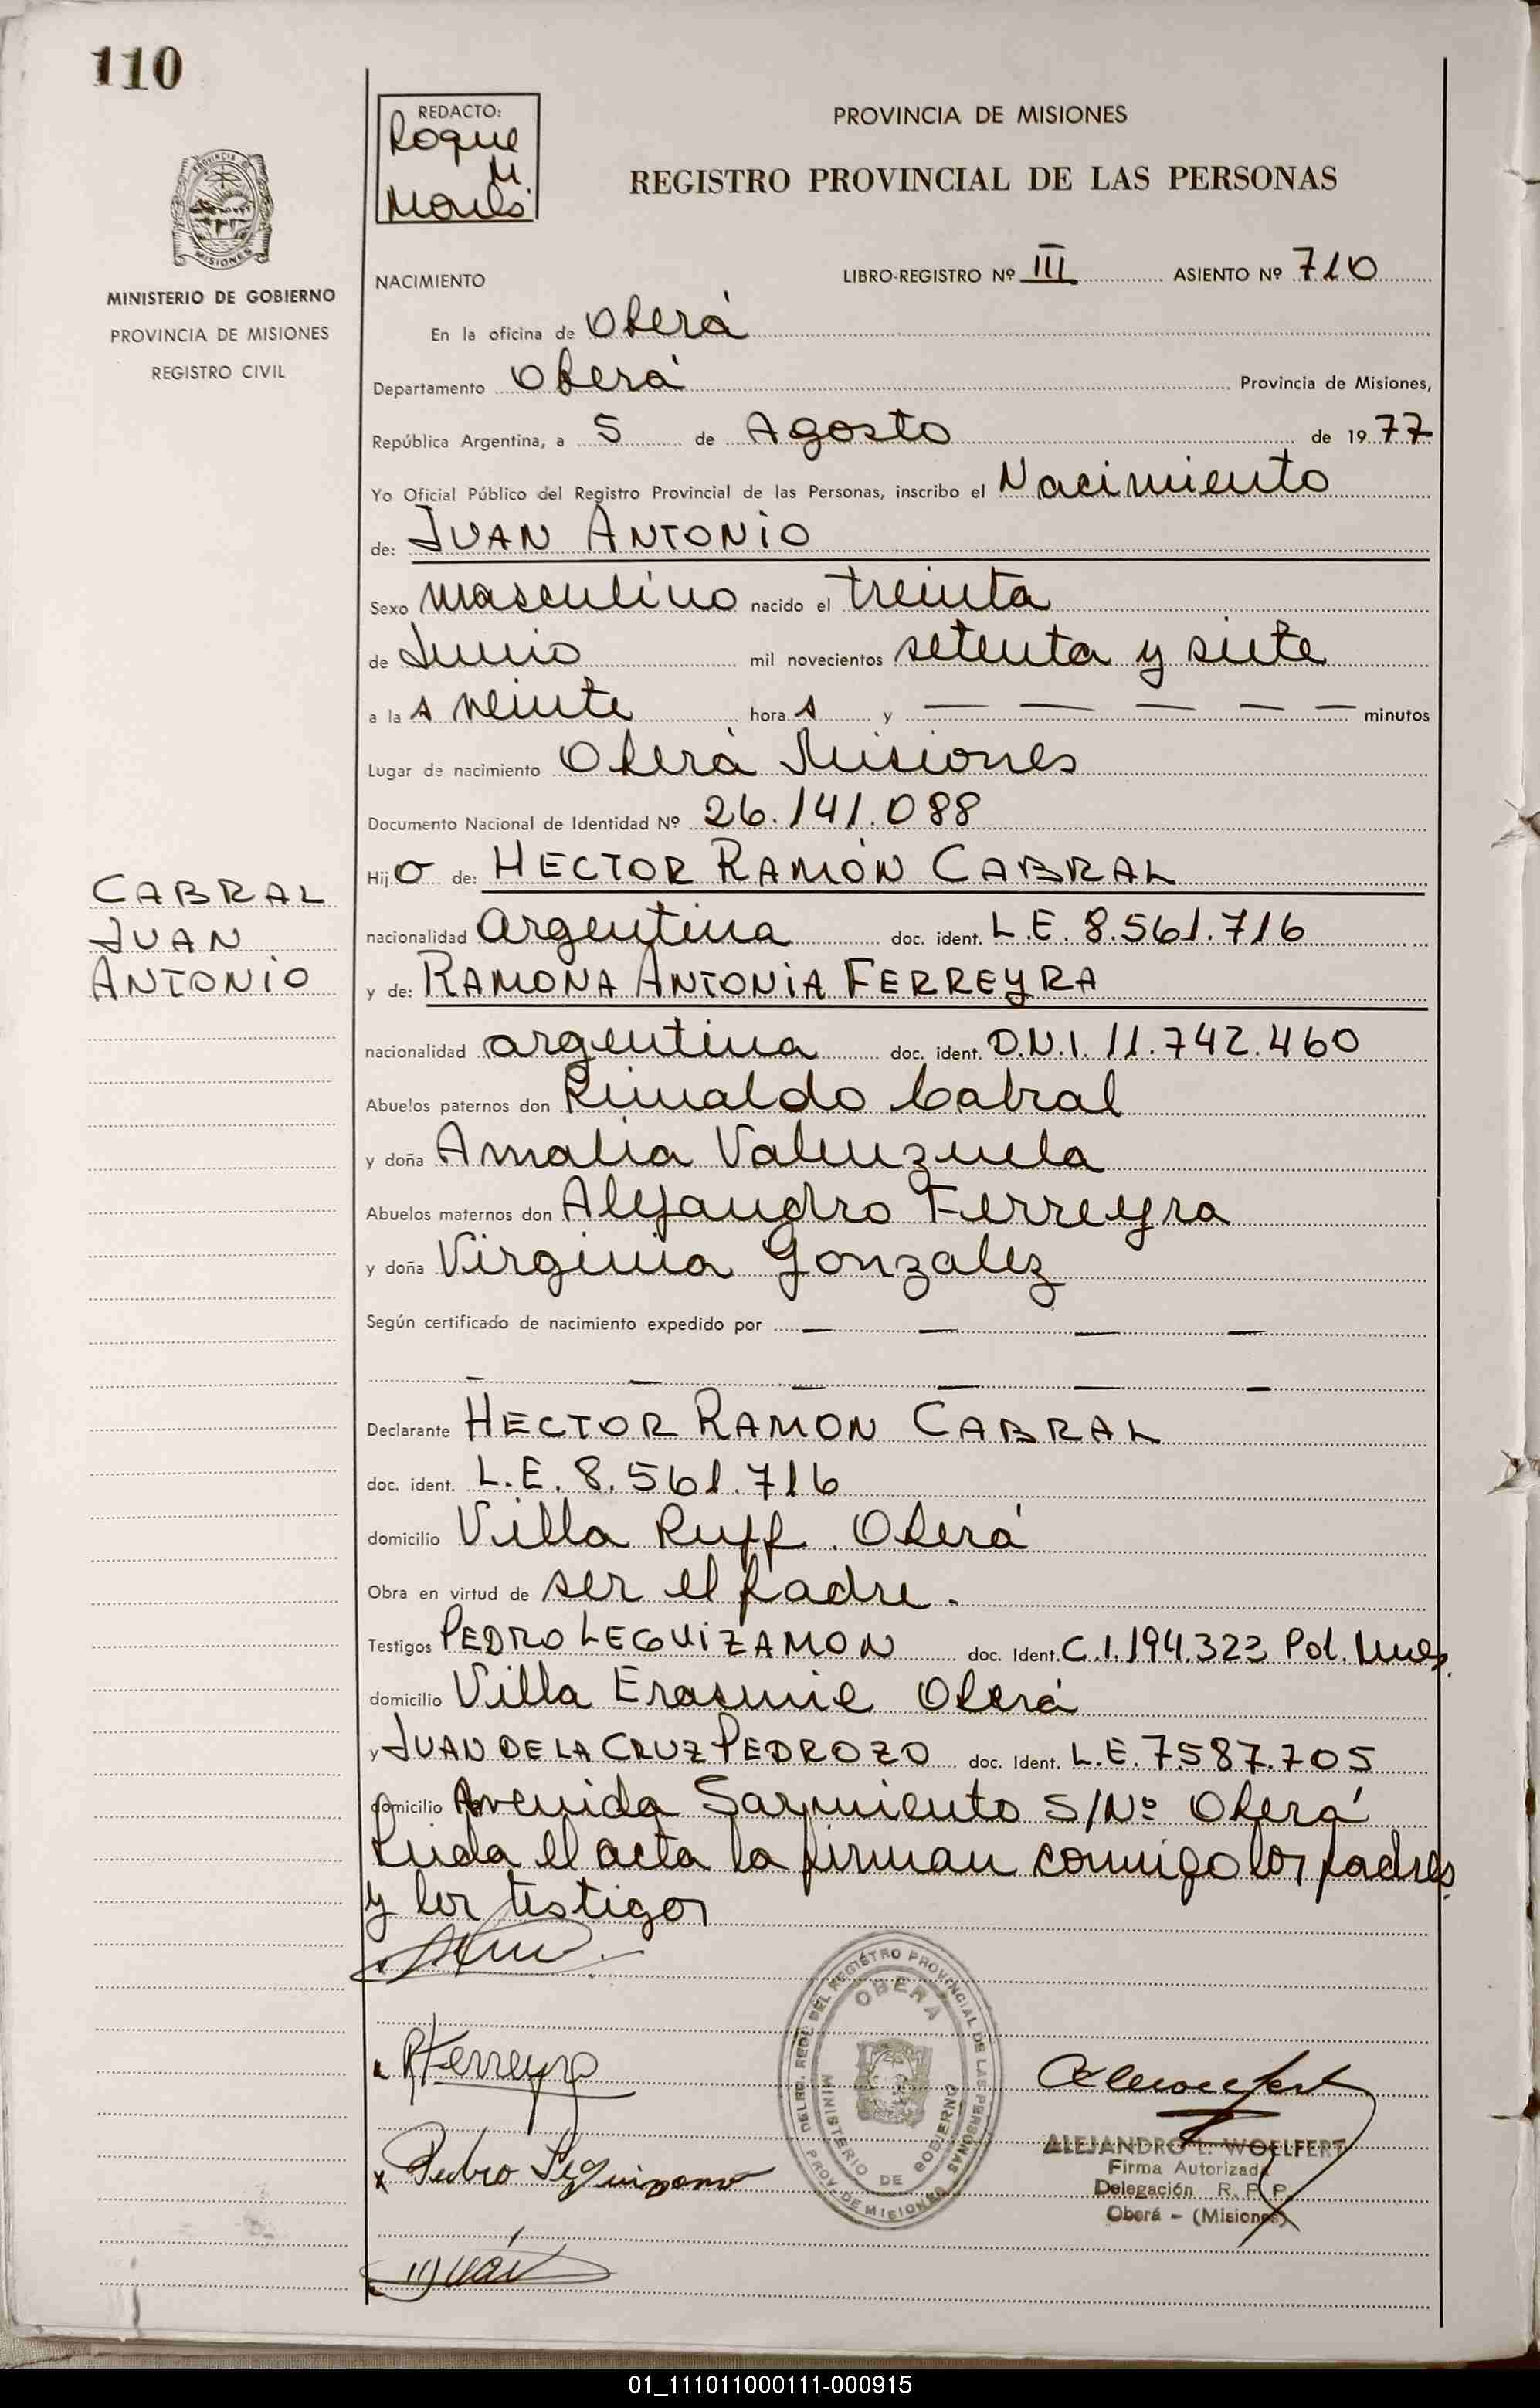 110
REDACTO:
Roque
M.
PROVINCIA DE MISIONES
REGISTRO PROVINCIAL DE LAS PERSONAS
PROVINCIA DE
MISIONES
MINISTERIO DE GOBIERNO
PROVINCIA DE MISIONES
REGISTRO CIVIL
NACIMIENTO LIBRO-REGISTRO Nº III ASIENTO Nº 710
En la oficina de Oberá
Departamento Oberá Provincia de Misiones,
República Argentina, a 5 de Agosto de 1977
Yo Oficial Público del Registro Provincial de las Personas, inscribo el Nacimiento
de: JUAN ANTONIO
Sexo masculino nacido el treinta
de Junio mil novecientos setenta y siete
a la s veinte hora s y — — — — — minutos
Lugar de nacimiento Oberá Misiones
Documento Nacional de Identidad Nº 26.141.088
Hij o de: HECTOR RAMÓN CABRAL
CABRAL
JUAN
ANTONIO
nacionalidad argentina doc. ident. L.E. 8.561.716
y de: RAMONA ANTONIA FERREYRA
nacionalidad argentina doc. ident. D.N.I. 11.742.460
Abuelos paternos don Rinaldo Cabral
y doña Amalia Valenzuela
Abuelos maternos don Alejandro Ferreyra
y doña Virginia Gonzalez
Según certificado de nacimiento expedido por — — — —
— — — — — —
Declarante HECTOR RAMÓN CABRAL
doc. ident. L.E. 8.561.716
domicilio Villa Ruff. Oberá
Obra en virtud de ser el padre.
Testigos PEDRO LEGUIZAMON doc. Ident. C.I. 194.323 Pol. Mnes.
domicilio Villa Erasmie Oberá
y JUAN DE LA CRUZ PEDROZO doc. Ident. L.E. 7.587.705
domicilio Avenida Sarmiento S/Nº Oberá
Leida el acta la firman conmigo los padres
y los testigos
RFerreyra
Pedro Leguizamon
DELEG. REGL DEL REGISTRO PROVINCIAL DE LAS PERSONAS
OBERA
MINISTERIO DE GOBIERNO
PROV. DE MISIONES
ALEJANDRO L. WOELFERT
Firma Autorizada
Delegación R. P. P.
Oberá - (Misiones)
01_111011000111-000915